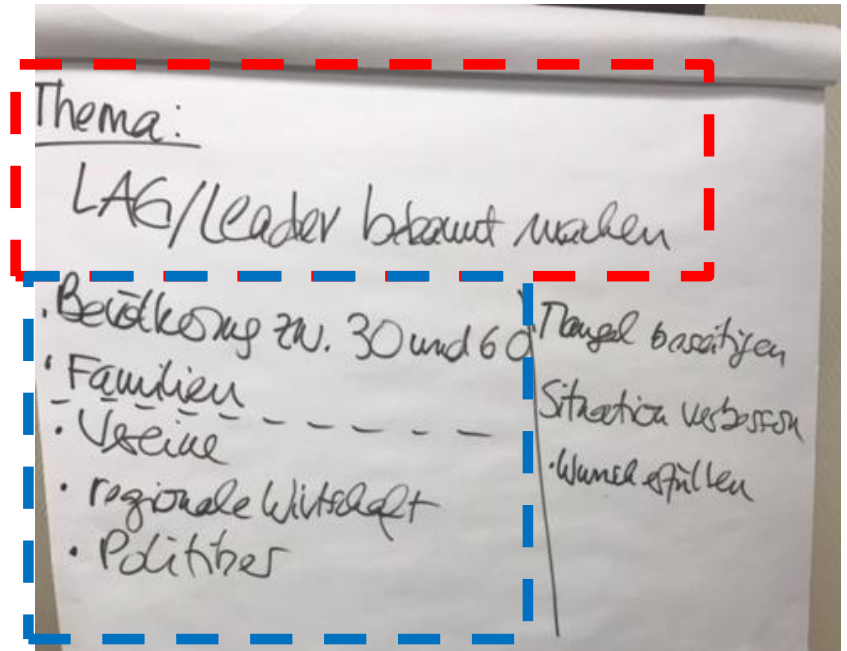 Thema:
LAG/Leader bekannt machen
· Bevölkerung zw. 30 und 60
· Familien
· Vereine
· regionale Wirtschaft
· Politiker
Mangel beseitigen
Situation verbessern
· Wunsch erfüllen